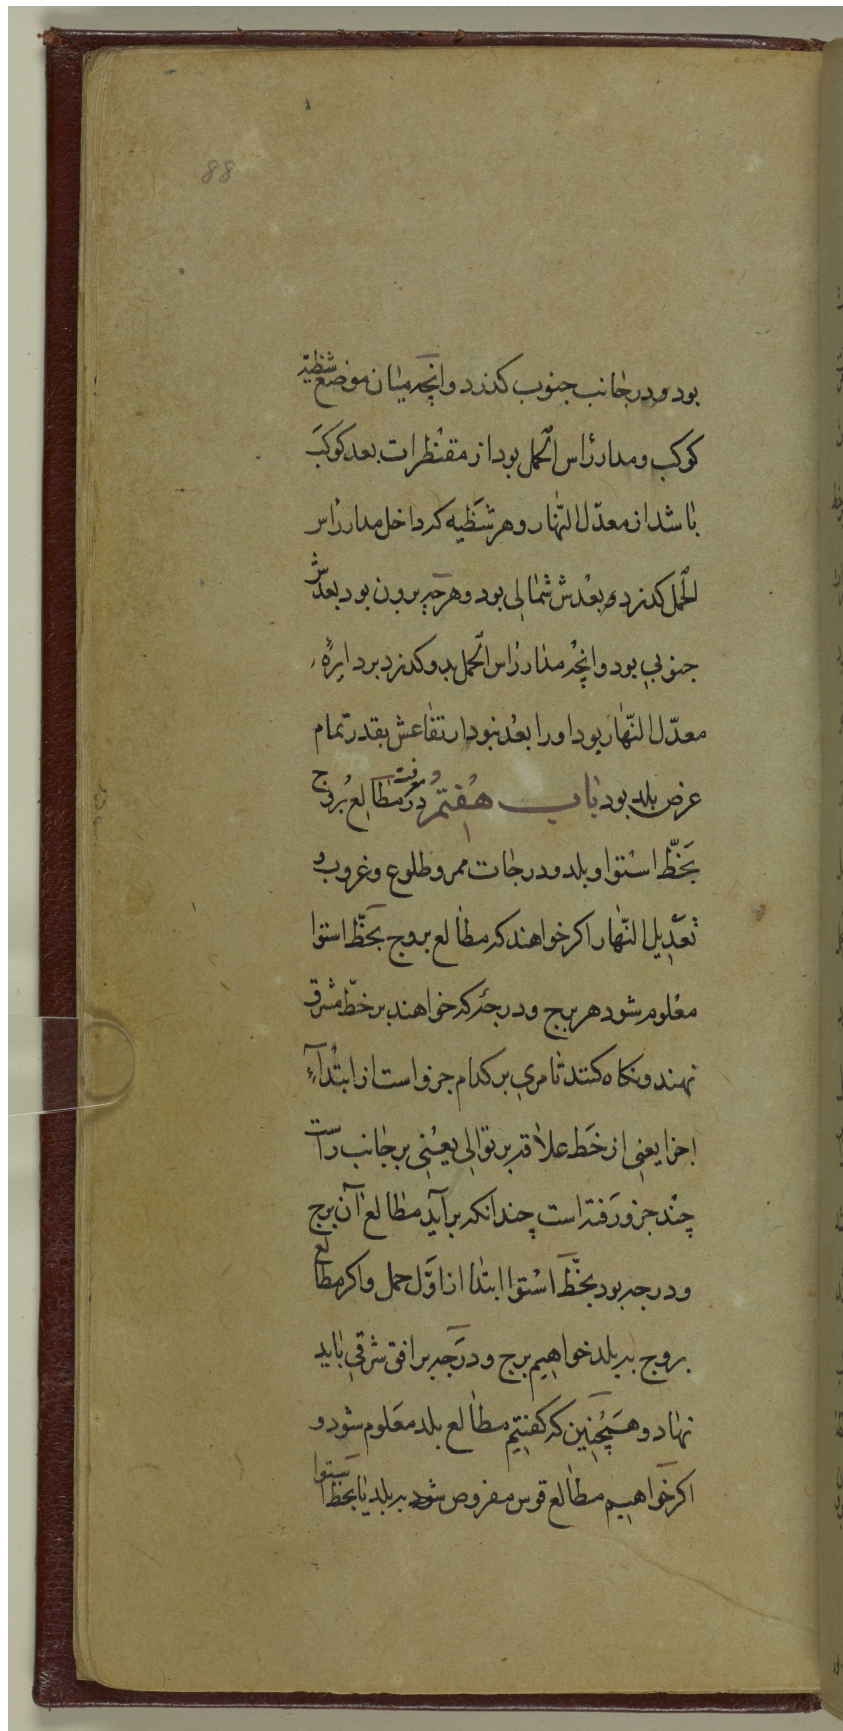 88
بود و در جانب جنوب کذرد و انچه میان موضع شظیّه
کوکب و مدار رأس الحمل بود از مقنطرات بعد کوکب
باشد از معدّل النّهار و هر شظیه که داخل مدار رأس
الحمل کذرد بعدش شمالی بود و هر چه برون بود بعدش
جنوبی بود و انچه مدار رأس الحمل بدو کذرد بر دایرهٔ
معدّل النّهار بود او را بعد نبود ارتفاعش بقدر تمام
عرض بلد بود باب هفتم در معرفت مطالع بروج
بخطّ استوا و بلد و درجات ممر و طلوع و غروب و
تعدیل النّهار اکر خواهند که مطالع بروج بخطّ استوا
معلوم شود هر برج و درجه که خواهند بر خطّ مشرق
نهند و نکاه کنند تا مری بر کدام جزو است از ابتدآء
اجزا یعنی از خط علاقه بر توالی یعنی بر جانب راست
چند جزو رفته است چندانکه برآید مطالع آن برج
و درجه بود بخطّ استوا ابتدا از اوّل حمل و اکر مطالع
بروج به بلد خواهیم برج و درجه بر افق شرقی باید
نهاد و همچنین که کفتیم مطالع بلد معلوم شود و
اکر خواهیم مطالع قوس مفروض شود به بلد یا بخطّ استوا